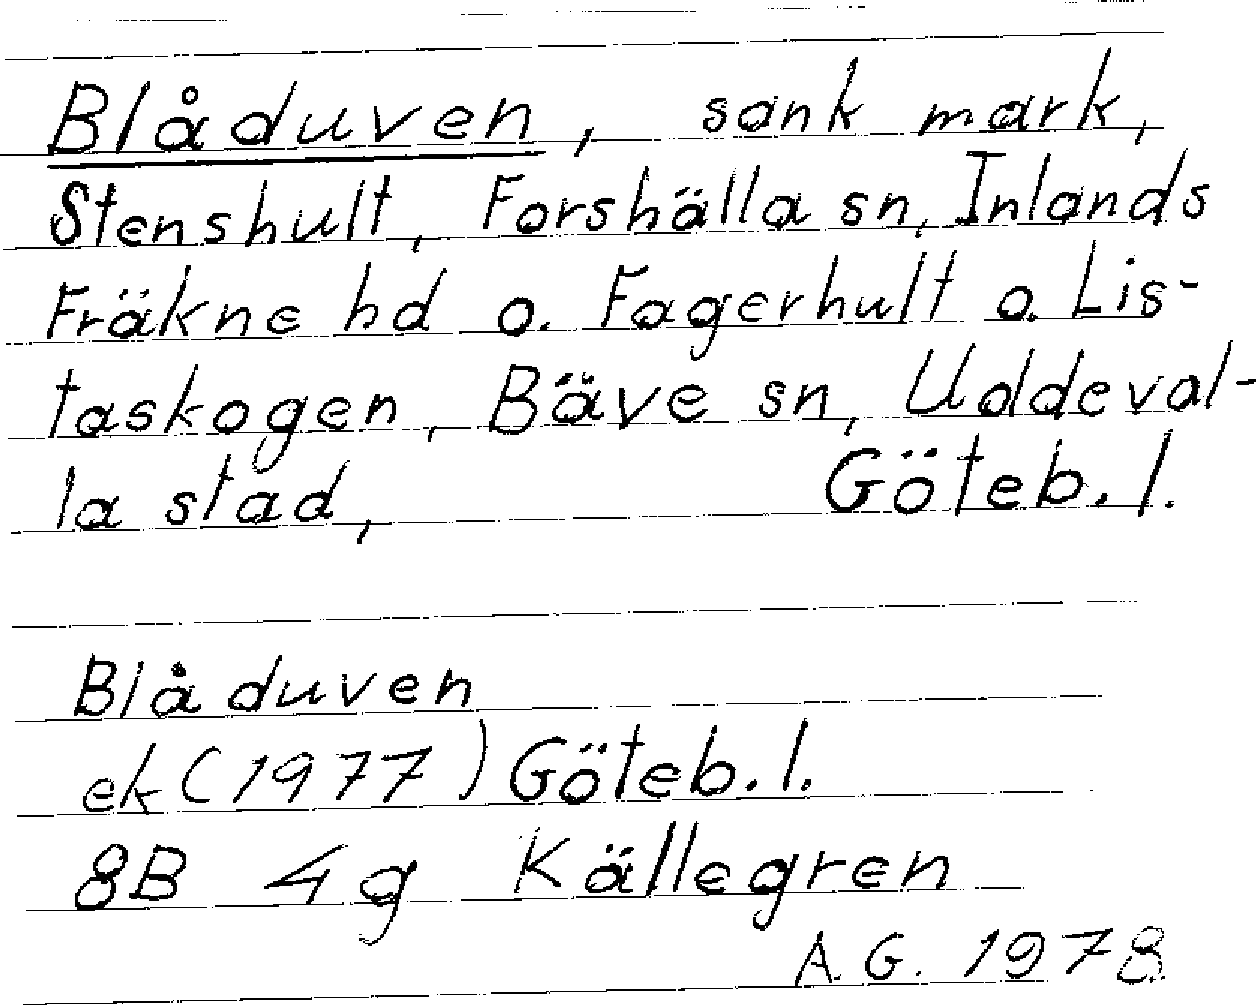 Blåduven, sank mark,
Stenshult, Forshälla sn, Inlands
Fräkne hd o. Fagerhult o. Lis-
taskogen, Bäve sn, Uddeval-
la stad, Göteb. l.
Blåduven
ek (1977) Göteb. l.
8B 4g Källegren
A.G. 1978